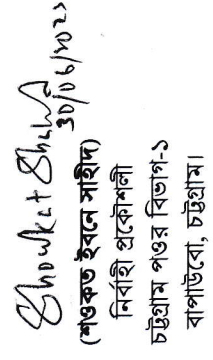 Showkat Shahid
30/06/2021
(শওকত ইবনে সাহীদ)
নির্বাহী প্রকৌশলী
চট্টগ্রাম পওর বিভাগ-১
বাপাউবো, চট্টগ্রাম।